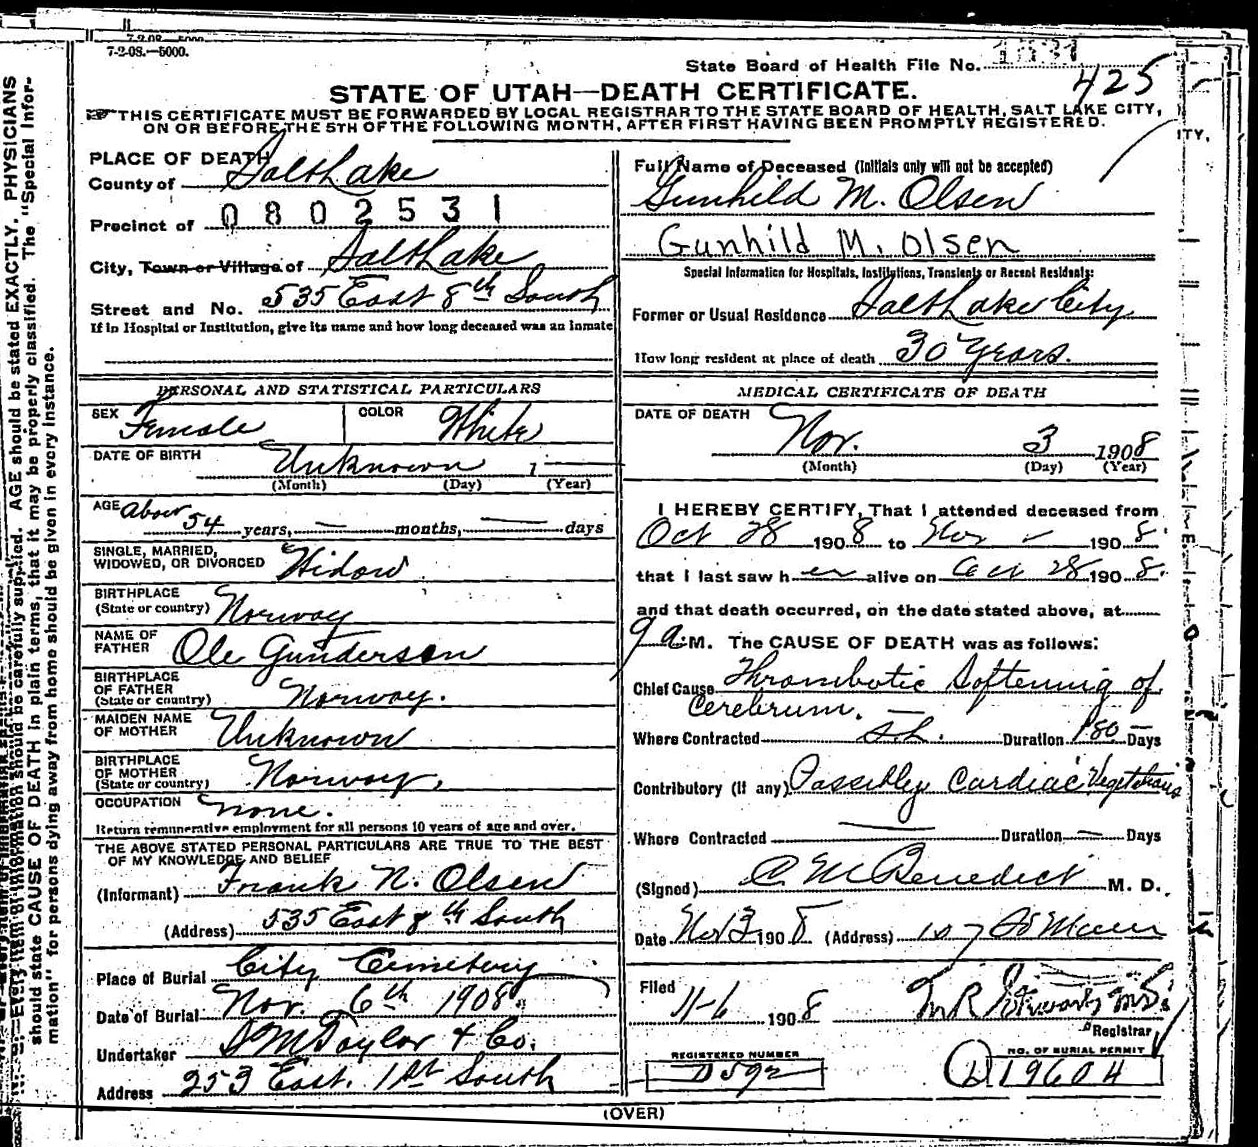 7-2-08.—5000.
State Board of Health File No.
425
STATE OF UTAH—DEATH CERTIFICATE.
THIS CERTIFICATE MUST BE FORWARDED BY LOCAL REGISTRAR TO THE STATE BOARD OF HEALTH, SALT LAKE CITY,
ON OR BEFORE THE 5TH OF THE FOLLOWING MONTH, AFTER FIRST HAVING BEEN PROMPTLY REGISTERED.
PLACE OF DEATH
County of Salt Lake
Precinct of 0802531
City, Town or Village of Salt Lake
Street and No. 535 East 8th South
If in Hospital or Institution, give its name and how long deceased was an inmate
Full Name of Deceased (Initials only will not be accepted)
Gunhild M. Olsen
Gunhild M. Olsen
Special Information for Hospitals, Institutions, Transients or Recent Residents:
Former or Usual Residence Salt Lake City
How long resident at place of death 30 Years.
PERSONAL AND STATISTICAL PARTICULARS
SEX Female COLOR White
DATE OF BIRTH Unknown 1
(Month) (Day) (Year)
AGE About 54 years, — months, — days
SINGLE, MARRIED,
WIDOWED, OR DIVORCED Widow
BIRTHPLACE
(State or country) Norway
NAME OF
FATHER Ole Gunderson
BIRTHPLACE
OF FATHER
(State or country) Norway.
MAIDEN NAME
OF MOTHER Unknown
BIRTHPLACE
OF MOTHER
(State or country) Norway,
OCCUPATION none.
Return remunerative employment for all persons 10 years of age and over.
THE ABOVE STATED PERSONAL PARTICULARS ARE TRUE TO THE BEST
OF MY KNOWLEDGE AND BELIEF
(Informant) Frank N. Olsen
(Address) 535 East 8th South
Place of Burial City Cemetery
Date of Burial Nov. 6th 1908.
Undertaker S M Taylor & Co.
Address 253 East. 1st South
MEDICAL CERTIFICATE OF DEATH
DATE OF DEATH Nov. 3 1908
(Month) (Day) (Year)
I HEREBY CERTIFY, That I attended deceased from
Oct 28 1908 to Nov — 1908.
that I last saw her alive on Oct 28 1908.
and that death occurred, on the date stated above, at
9 a. M. The CAUSE OF DEATH was as follows:
Chief Cause Thrombotic Softening of
Cerebrum. —
Where Contracted S. L. Duration 180 Days
Contributory (if any) Possibly Cardiac Vegetations
Where Contracted — Duration — Days
(Signed) C M Benedict M. D.
Date Nov 3 1908 (Address)
Filed
11-6 1908
Registrar
REGISTERED NUMBER
D592
NO. OF BURIAL PERMIT
D 19604
(OVER)
should be carefully supplied. AGE should be stated EXACTLY. PHYSICIANS
should state CAUSE OF DEATH in plain terms, that it may be properly classified. The "Special Infor-
mation" for persons dying away from home should be given in every instance.